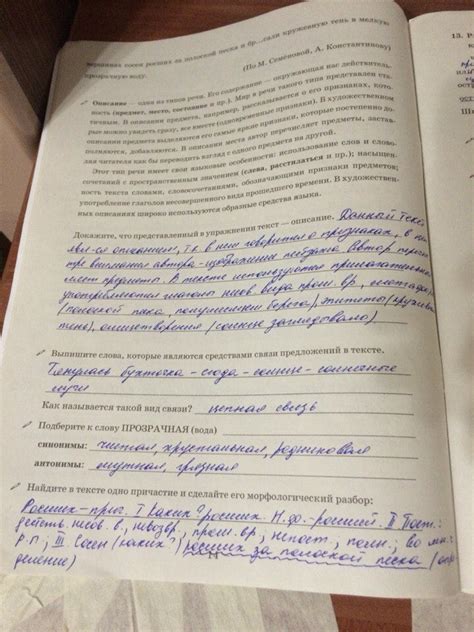 вершинах сосен росших за полоской песка и бр...сали кружевную тень в мелкую
прозрачную воду.
(По М. Семеновой, А. Константинову)
Описание — один из типов речи. Его содержание — окружающая нас действитель-
ность (предмет, место, состояние и пр.). Мир в речи такого типа представлен ста-
тичным. В описании предмета, например, рассказывается о его признаках, кото-
рые можно увидеть сразу, все вместе (одновременные признаки). В художественном
описании предмета выделяются его самые яркие признаки, которые постепенно до-
полняются, добавляются. В описании места автор перечисляет предметы, застав-
ляя читателя как бы переводить взгляд с одного предмета на другой.
Этот тип речи имеет свои языковые особенности: использование слов и слово-
сочетаний с пространственным значением (слева, расстилаться и пр.); насыщен-
ность текста словами, словосочетаниями, обозначающими признаки предметов;
употребление глаголов несовершенного вида прошедшего времени. В художествен-
ных описаниях широко используются образные средства языка.
Докажите, что представленный в упражнении текст — описание. Данный текст
явл-ся описанием, т.к. в нём говорится о признаках, в
внимания автора – изображение пейзажа. Автор перечис
ляет предметы. В тексте используются прилагательные
употребляются глаголы несов. вида прош. вр.,
(полоской песка, полумесяцем берега), эпитеты (кружев.
тень), олицетворения (солнце заглядывало)
Выпишите слова, которые являются средствами связи предложений в тексте.
Тянулась бухточка – сюда – солнце – солнечные
лучи
Как называется такой вид связи? цепная связь
Подберите к слову ПРОЗРАЧНАЯ (вода)
синонимы: чистая, хрустальная, родниковая
антонимы: мутная, грязная
Найдите в тексте одно причастие и сделайте его морфологический разбор:
Росших – прич. I (каких?) росших. Н.ф. – росший. II Пост.:
действ. несов. в., невозвр., прош. вр., непост., полн.; во мн.ч.
Р.п.; III Сосен (каких?) росших за полоской песка (опр
еделение)
13. Р